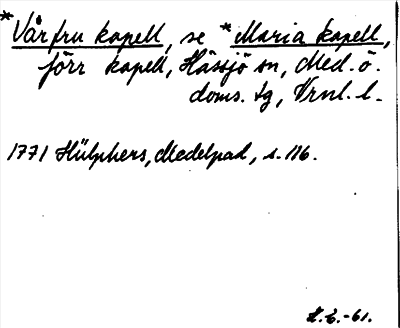 *Vårfru kapell, se *Maria kapell,
förr kapell, Hässjö sn, Med. ö.
doms. tg, Vrnl. l.
1771 Hülphers, Medelpad, s. 116.
H. E. -61.